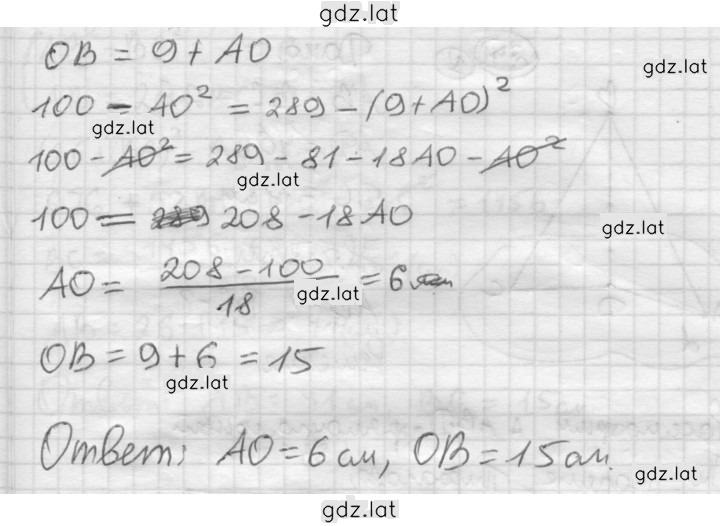 gdz.lat
OB = 9 + AO
gdz.lat
100 - AO² = 289 - (9 + AO)²
gdz.lat
100 - AO² = 289 - 81 - 18AO - AO²
gdz.lat
100 = 289 208 - 18AO
gdz.lat
AO = (208 - 100)/18 = 6 см
gdz.lat
OB = 9 + 6 = 15
gdz.lat
Ответ: AO = 6 см, OB = 15 см.
gdz.lat
gdz.lat